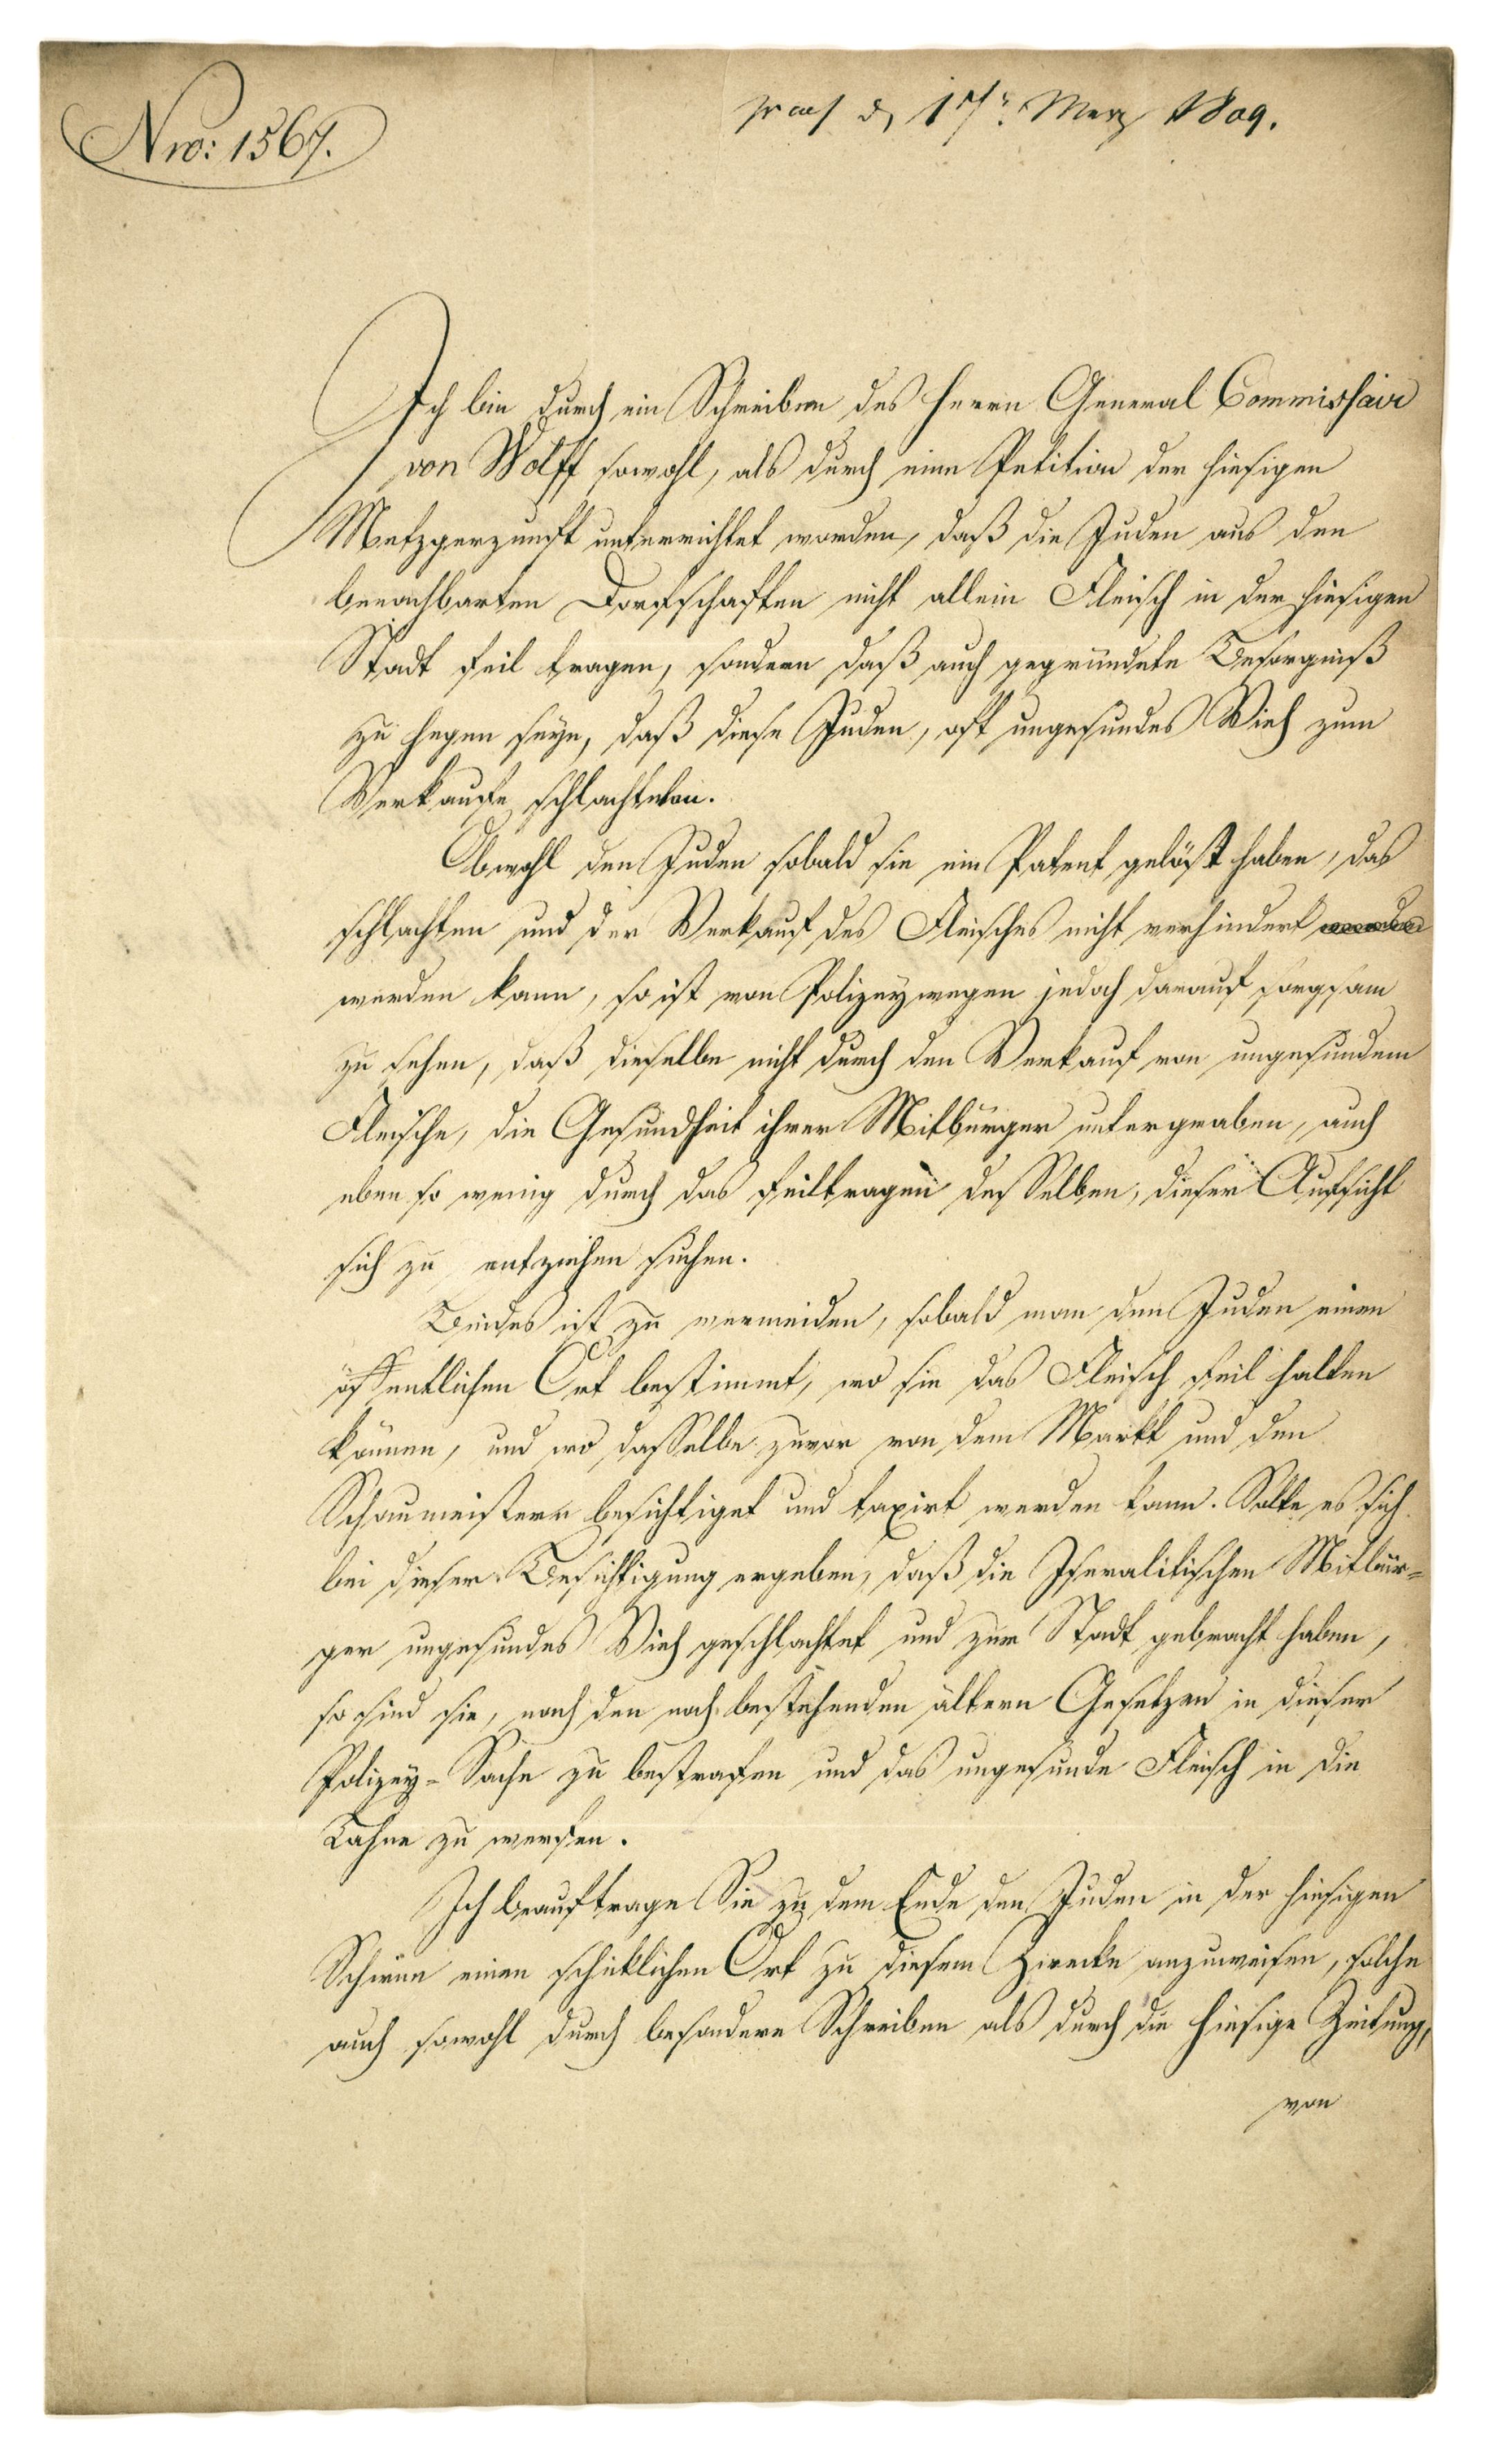 Nro: 1567.
praes d 17t Merz 1809.
Ich bin durch ein Schreiben des Herrn General Commissair
von Wolff sowohl, als durch eine Petition der hiesigen
Metzgerzunft unterrichtet worden, daß die Juden aus den
benachbarten Dorfschaften nicht allein Fleisch in der hiesigen
Stadt feil tragen, sondern daß auch gegründete Besorgniß
zu hegen seye, daß diese Juden, oft ungesundes Vieh zum
Verkaufe schlachteten.
Obwohl den Juden sobald sie ein Patent gelößt haben, das
schlachten und der Verkauf des Fleisches nicht verhindert
werden kann, so ist von Polizeywegen jedoch darauf sorgsam
zu sehen, daß dieselbe nicht durch den Verkauf von ungesundem
Fleische, die Gesundheit ihrer Mitbürger untergraben, auch
eben so wenig durch das feiltragen desselben, dieser Aufsicht
sich zu entziehen suchen.
Beides ist zu vermeiden, sobald man den Juden einen
öffentlichen Ort bestimmt, wo sie das Fleisch feil halten
können, und wo dasselbe zuvor von dem Markt und den
Schaumeistern besichtiget und taxirt werden kann. Sollte es sich
bei dieser Besichtigung ergeben, daß die Iseralitischen Mitbür=
ger ungesundes Vieh geschlachtet und zur Stadt gebracht haben,
so sind sie, nach den noch bestehenden ältern Gesetzen in dieser
Polizey-Sache zu bestrafen und das ungesunde Fleisch in die
Lahne zu werfen.
Ich beauftrage Sie zu dem Ende den Juden in der hiesigen
Schirne einen schicklichen Ort zu diesem Zwecke anzuweisen, solche
auch sowohl durch besondere Schreiben als durch die hiesige Zeitung,
von